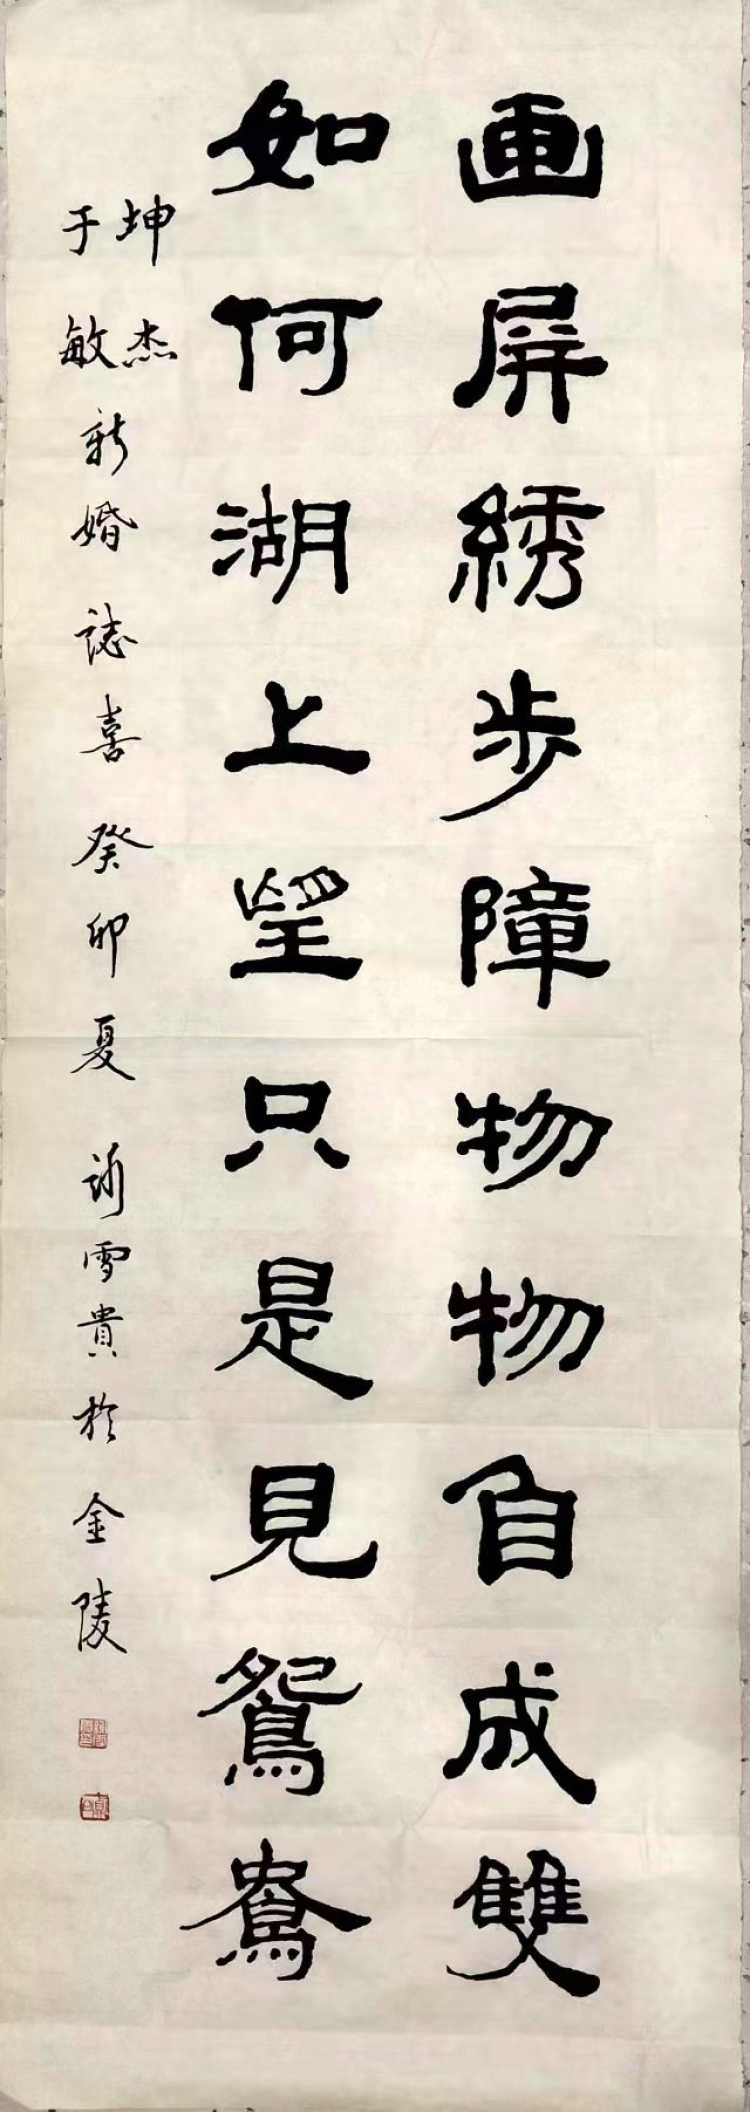 画屏綉步障物物自成雙
如何湖上望只是見鴛鴦
坤杰
于敏
新婚誌喜癸卯夏謝雪貴於金陵